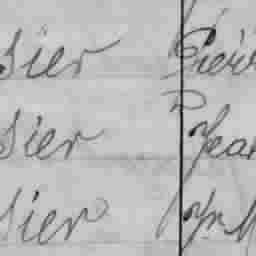 sier Pierr
sier Jean
sier Jn M